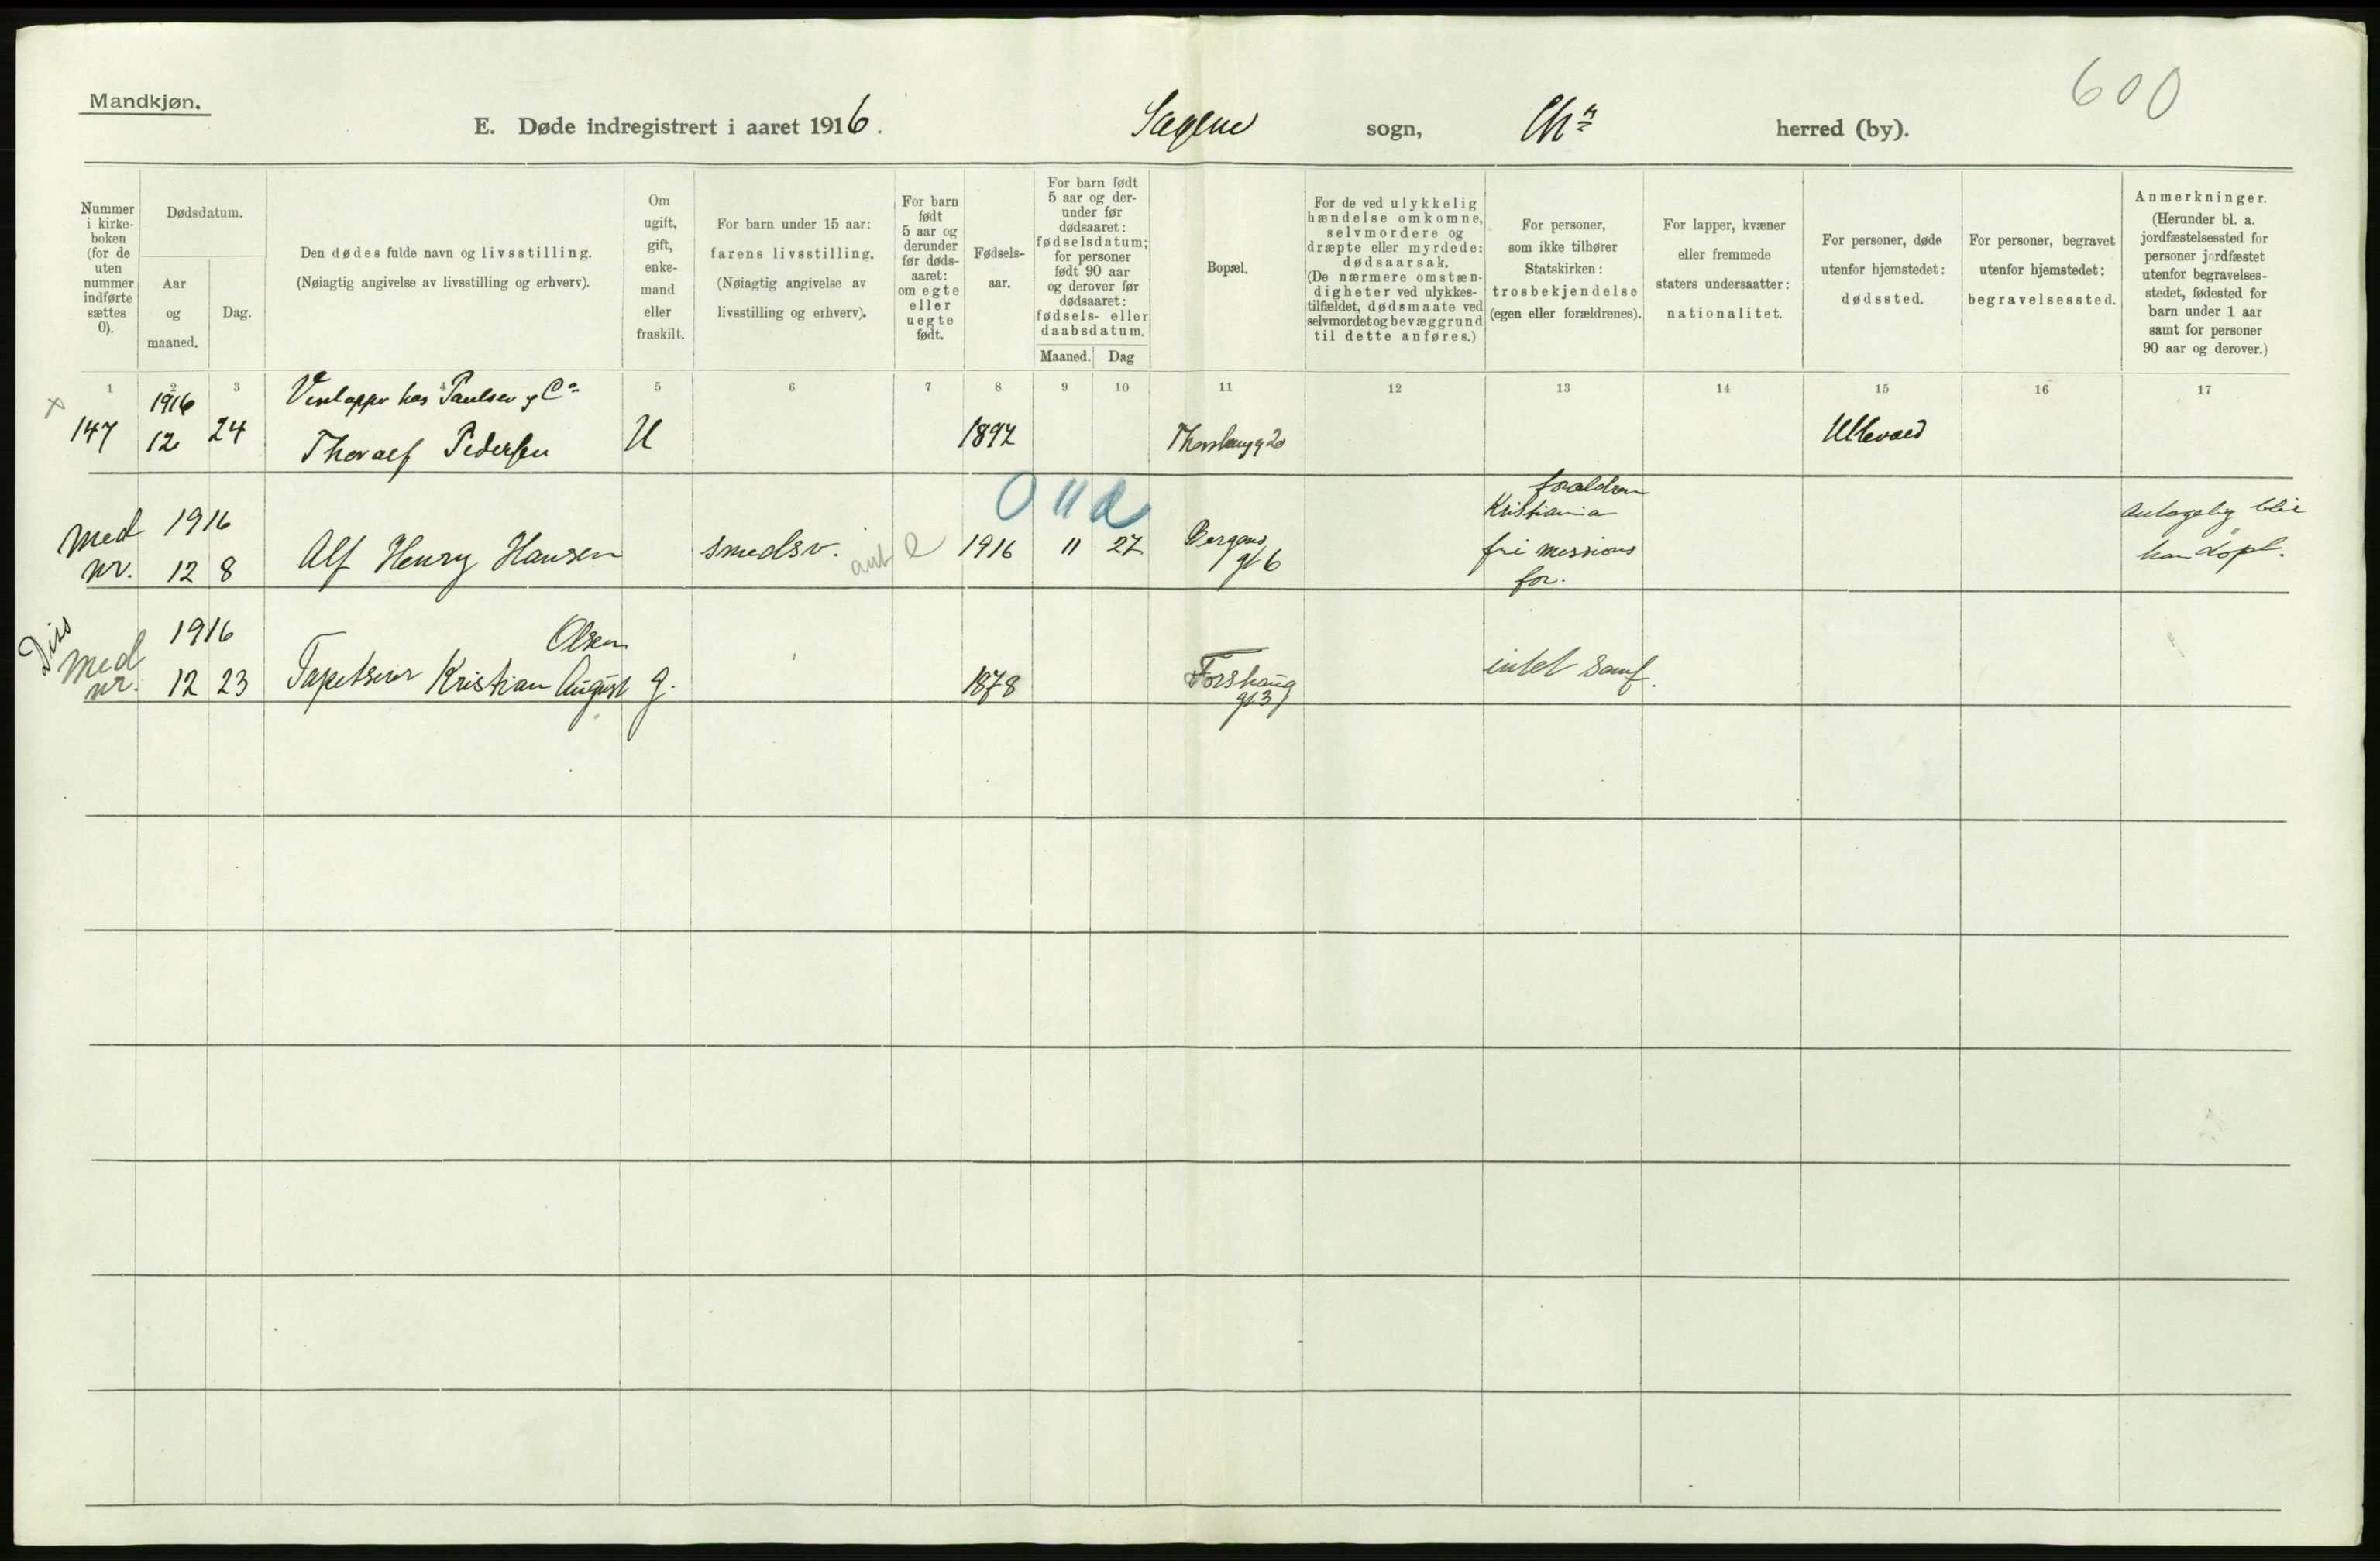 Mandkjøn.
600
E. Døde indregistrert i aaret 1916. Sagene sogn, Chr herred (by).
Nummer i kirke-boken (for de uten nummer indførte sættes 0).
Dødsdatum.
Aar og maaned.
Dag.
Den dødes fulde navn og livsstilling.
(Nøiagtig angivelse av livsstilling og erhverv).
Om ugift, gift, enke-mand eller fraskilt.
For barn under 15 aar:
farens livsstilling.
(Nøiagtig angivelse av livsstilling og erhverv).
For barn født 5 aar og derunder før døds-aaret: om egte eller uegte født.
Fødsels-aar.
For barn født 5 aar og der-under før dødsaaret: fødselsdatum; for personer født 90 aar og derover før dødsaaret: fødsels- eller daabsdatum.
Maaned. Dag
Bopæl.
For de ved ulykkelig hændelse omkomne, selvmordere og dræpte eller myrdede: dødsaarsak.
(De nærmere omstæn-digheter ved ulykkes-tilfældet, dødsmaate ved selvmordet og bevæggrund til dette anføres.)
For personer, som ikke tilhører Statskirken: trosbekjendelse (egen eller forældrenes).
For lapper, kvæner eller fremmede staters undersaatter: nationalitet.
For personer, døde utenfor hjemstedet: dødssted.
For personer, begravet utenfor hjemstedet: begravelsessted.
Anmerkninger.
(Herunder bl. a. jordfæstelsessted for personer jordfæstet utenfor begravelses-stedet, fødested for barn under 1 aar samt for personer 90 aar og derover.)
1 2 3 4 5 6 7 8 9 10 11 12 13 14 15 16 17
x 1916 hos Paulsen & Co
147 12 24 Thoralf Pedersen U 1892 20 Ullevaal
0 11 2
Med nr. 1916 12 8 Alf Henry Hansen smedsv. ant e 1916 11 27 Bergens gt 6 forældren Kristiania fri missions for. Antagelig blir han døpt.
Diss Med nr. 1916 12 23 Tapetserer Kristian August Olsen g. 1878 Torshaug gt 3 intet samf.